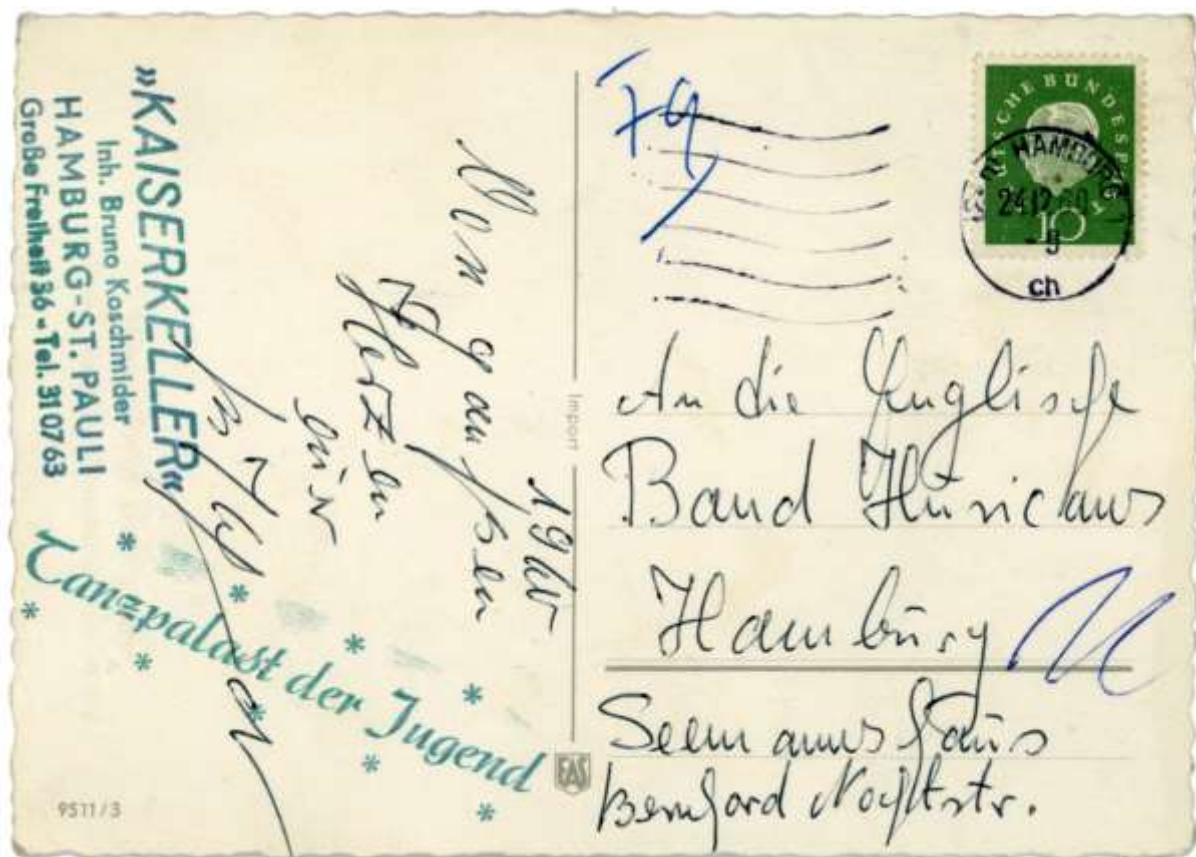 »KAISERKELLER«
Inh. Bruno Koschmider
HAMBURG-ST. PAULI
Große Freiheit 36 - Tel. 310763
Tanzpalast der Jugend
1960
Von ganßen
Herzen
euer
9511/3
Import
EAS
DEUTSCHE BUNDESPOST
10
HAMBURG
24.12.60
- 9
ch
An die Englische
Band Huricans
Hamburg
Seemannshaus
Bernhard Nochtstr.